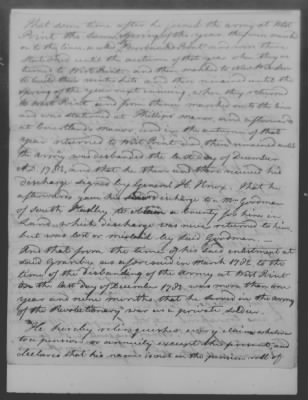 That some time after he joined the army at West
Point the same Spring of the year they were marched
on to the lines called Verplanks Point and were there
stationed until the autumn of that year when they re-
turned to West Point, and then marched to New Windsor
to build their winter huts and there remained until the
Spring of the year next ensuing, when they returned
to West Point and from thence marched onto the lines
and was stationed at Phillips Manor, and afterwards
at Courtlandt Manor, and in the autumn of that
year returned to West Point and there remained until
the army was disbanded the last day of December
A.D. 1783, and that he then and there received his
discharge signed by General H. Knox. That he
afterwards gave his discharge to a Mr Goodman
of South Hadley to obtain a bounty for him in
Land, which discharge was never returned to him,
but was lost or mislaid by said Goodman —
And that from the time of his said enlistment at
said Granby as aforesaid in March 1782 to the
time of the disbanding of the Army at West Point
on the last day of December 1783 was more than one
year and nine months that he served in the army
of the Revolutionary war as a private soldier.
He hereby relinquishes every claim whatever
to a pension or annuity except the present, and
declares that his name is not on the pension roll of